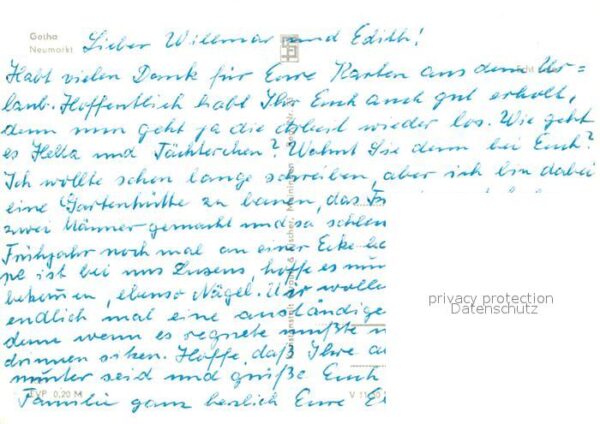 Gotha
Neumarkt
Lieber Willmar und Edith!
Habt vielen Dank für Eure Karten aus dem Ur=
laub. Hoffentlich habt Ihr Euch auch gut erholt,
denn nun geht ja die Arbeit wieder los. Wie geht
es Hella und Töchterchen? Wohnt Sie denn bei Euch?
Ich wollte schon lange schreiben, aber ich bin dabei
eine Gartenhütte zu bauen, das
zwei Männer gemacht und so
Frühjahr noch mal an einer Ecke
ist bei uns hoffe es
bekommen, ebenso Nägel. wolle
endlich mal eine anständige
denn wenn es regnete mußte
drinnen sitzen. Hoffe, daß Ihr
munter seid und grüße Euch
Familie ganz herzlich Eure
EVP 0,20 M
privacy protection
Datenschutz